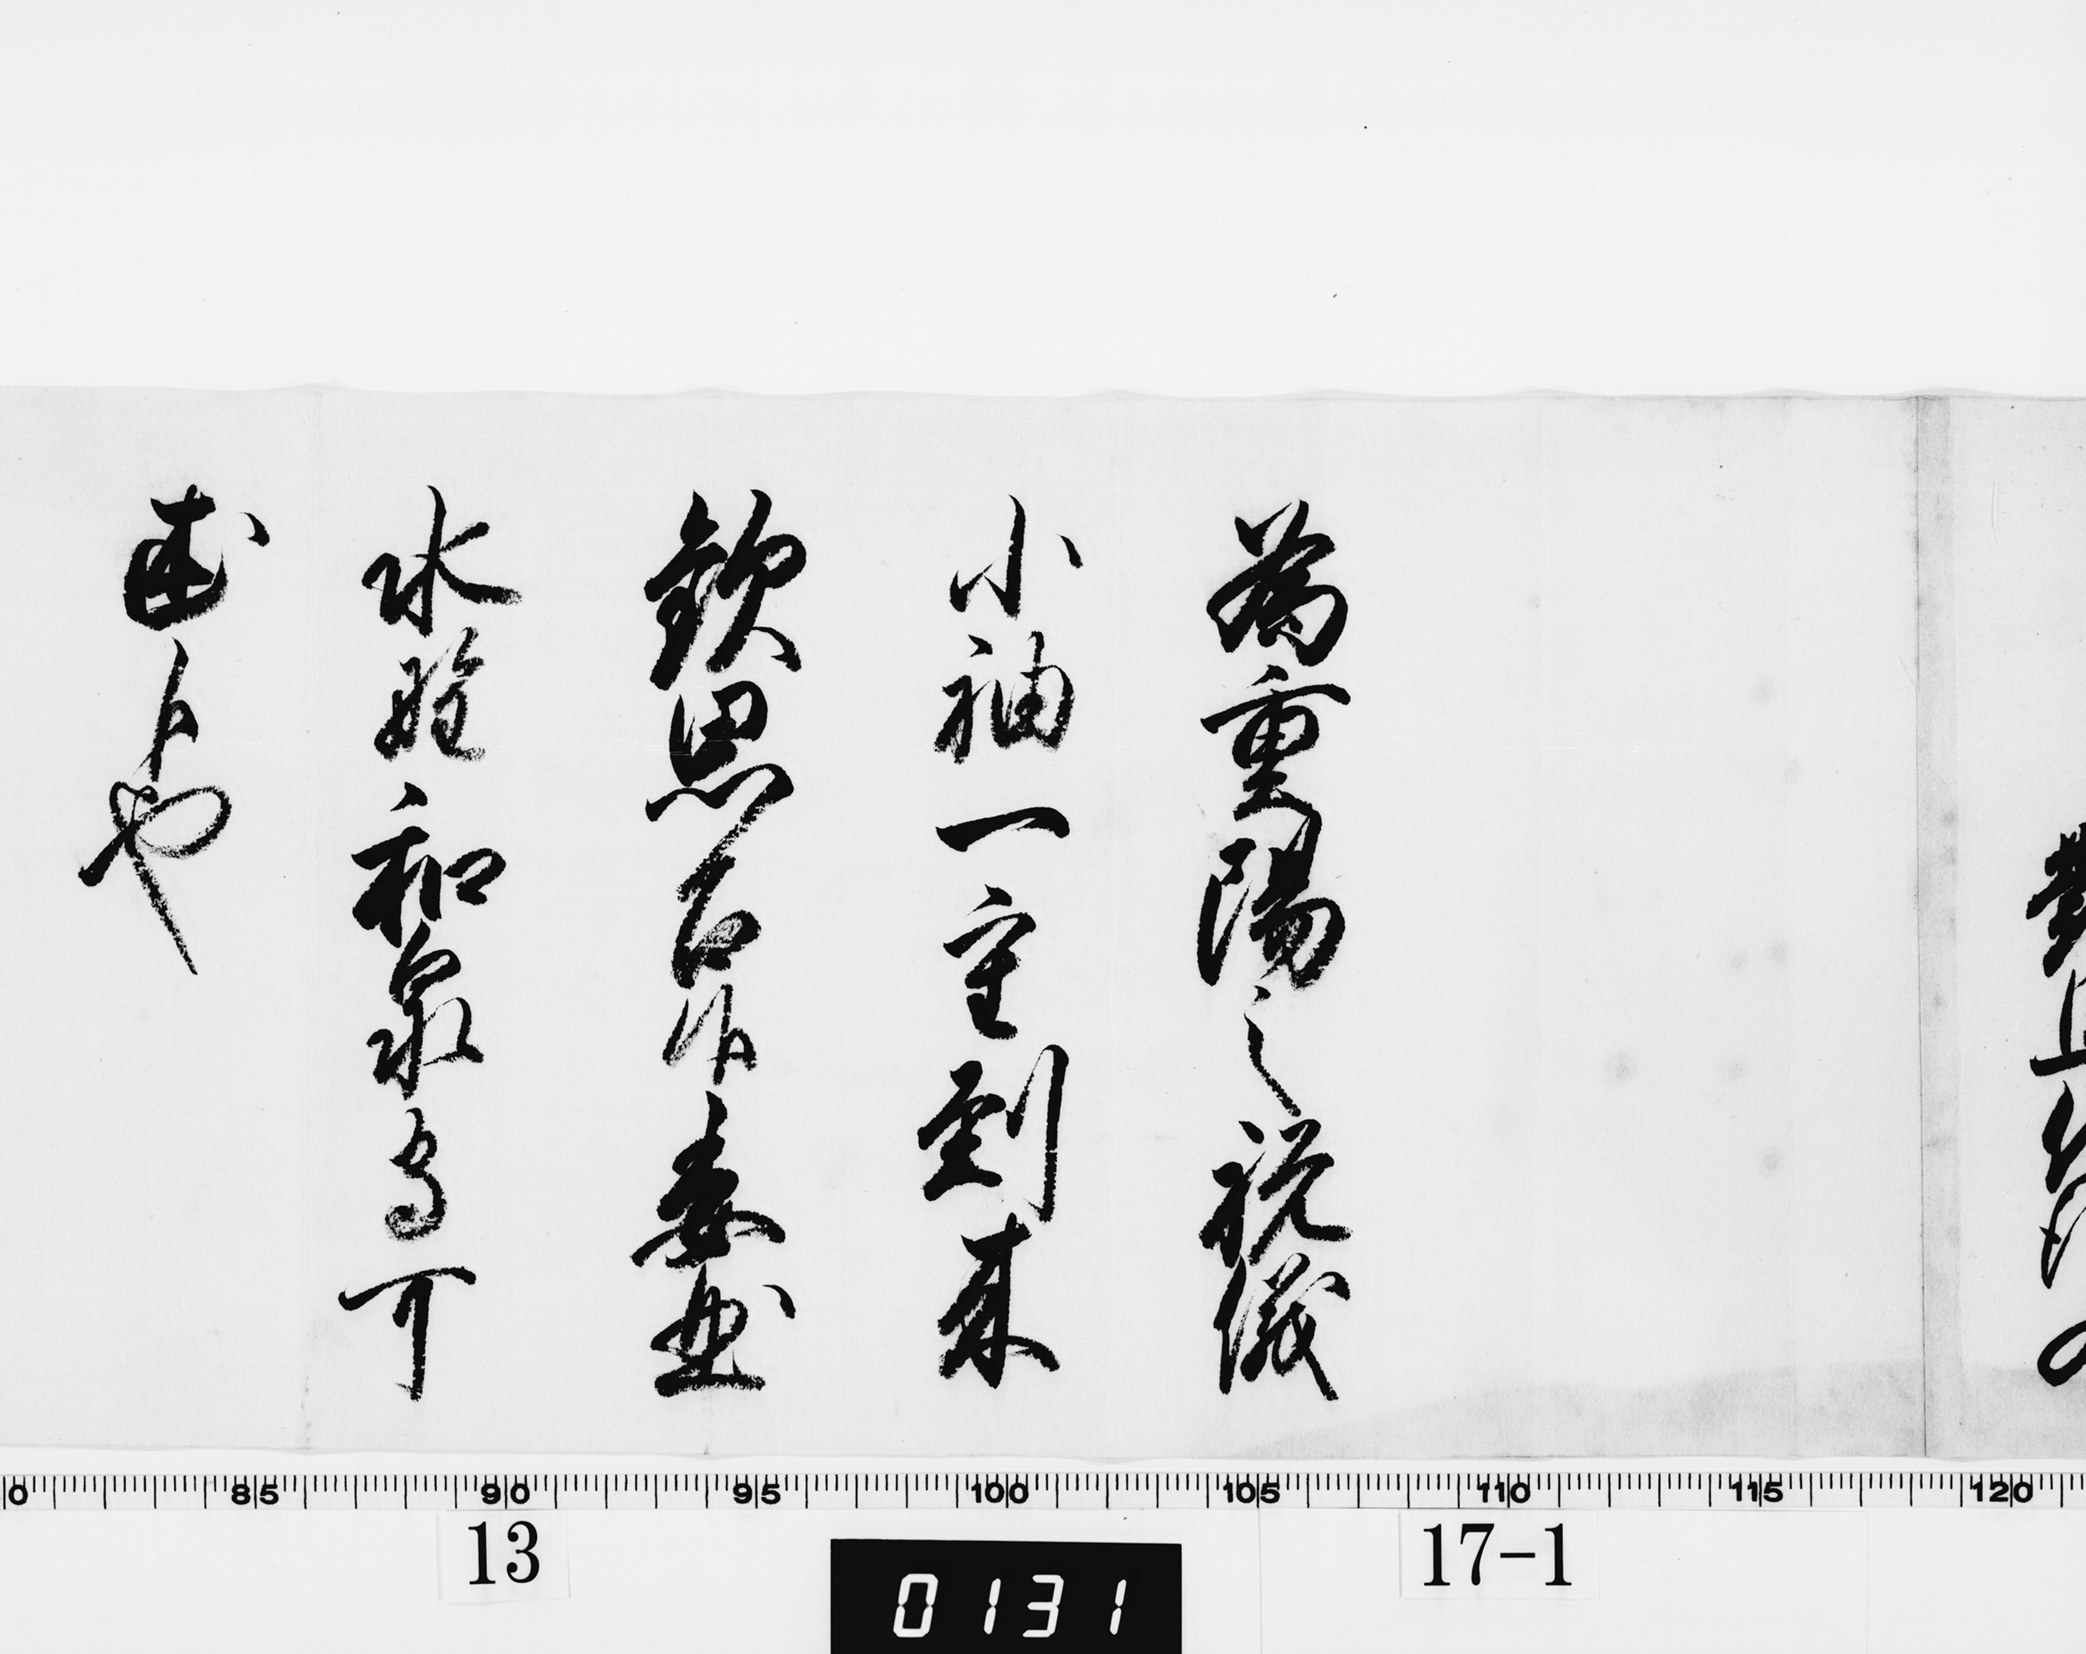 為重陽之祝儀
小袖一重到来
歓思召候委曲
水野和泉守可
述候也
0 85 90 95 100 105 110 115 120
13
17-1
0131